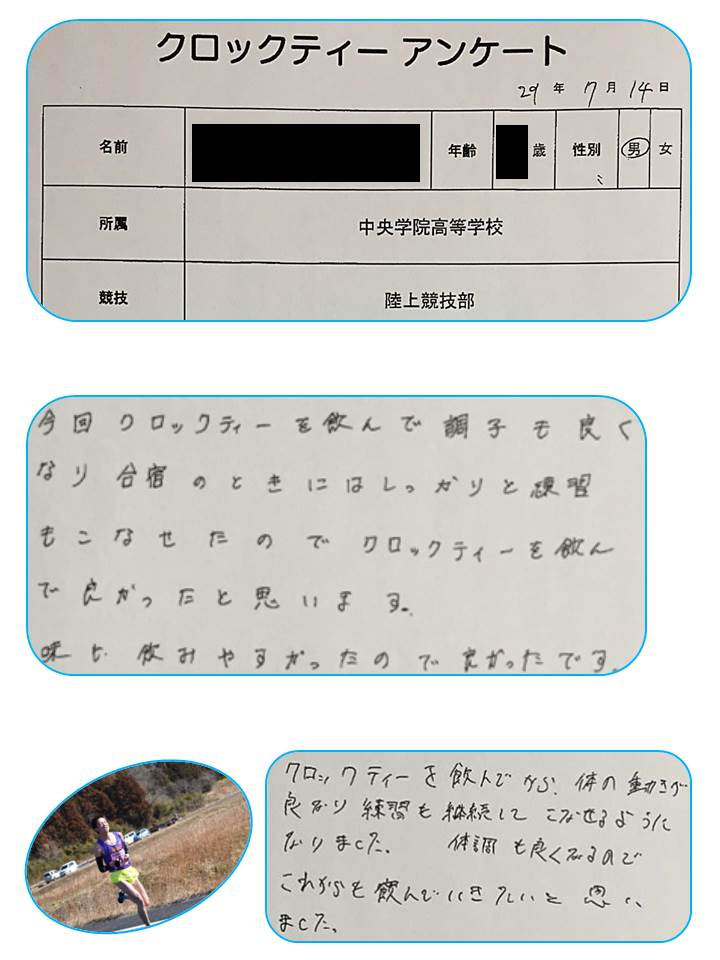 クロックティー アンケート
29年 7月 14日
名前 年齢 歳 性別 男 女
所属 中央学院高等学校
競技 陸上競技部
今回クロックティーを飲んで調子も良く
なり合宿のときにはしっかりと練習
もこなせたのでクロックティーを飲ん
で良かったと思います。
味も飲みやすかったので良かったです。
クロックティーを飲んでから、体の動きが
良くなり練習も継続してこなせるように
なりました。 体調も良くなるので
これからも飲んでいきたいと思い
ました。